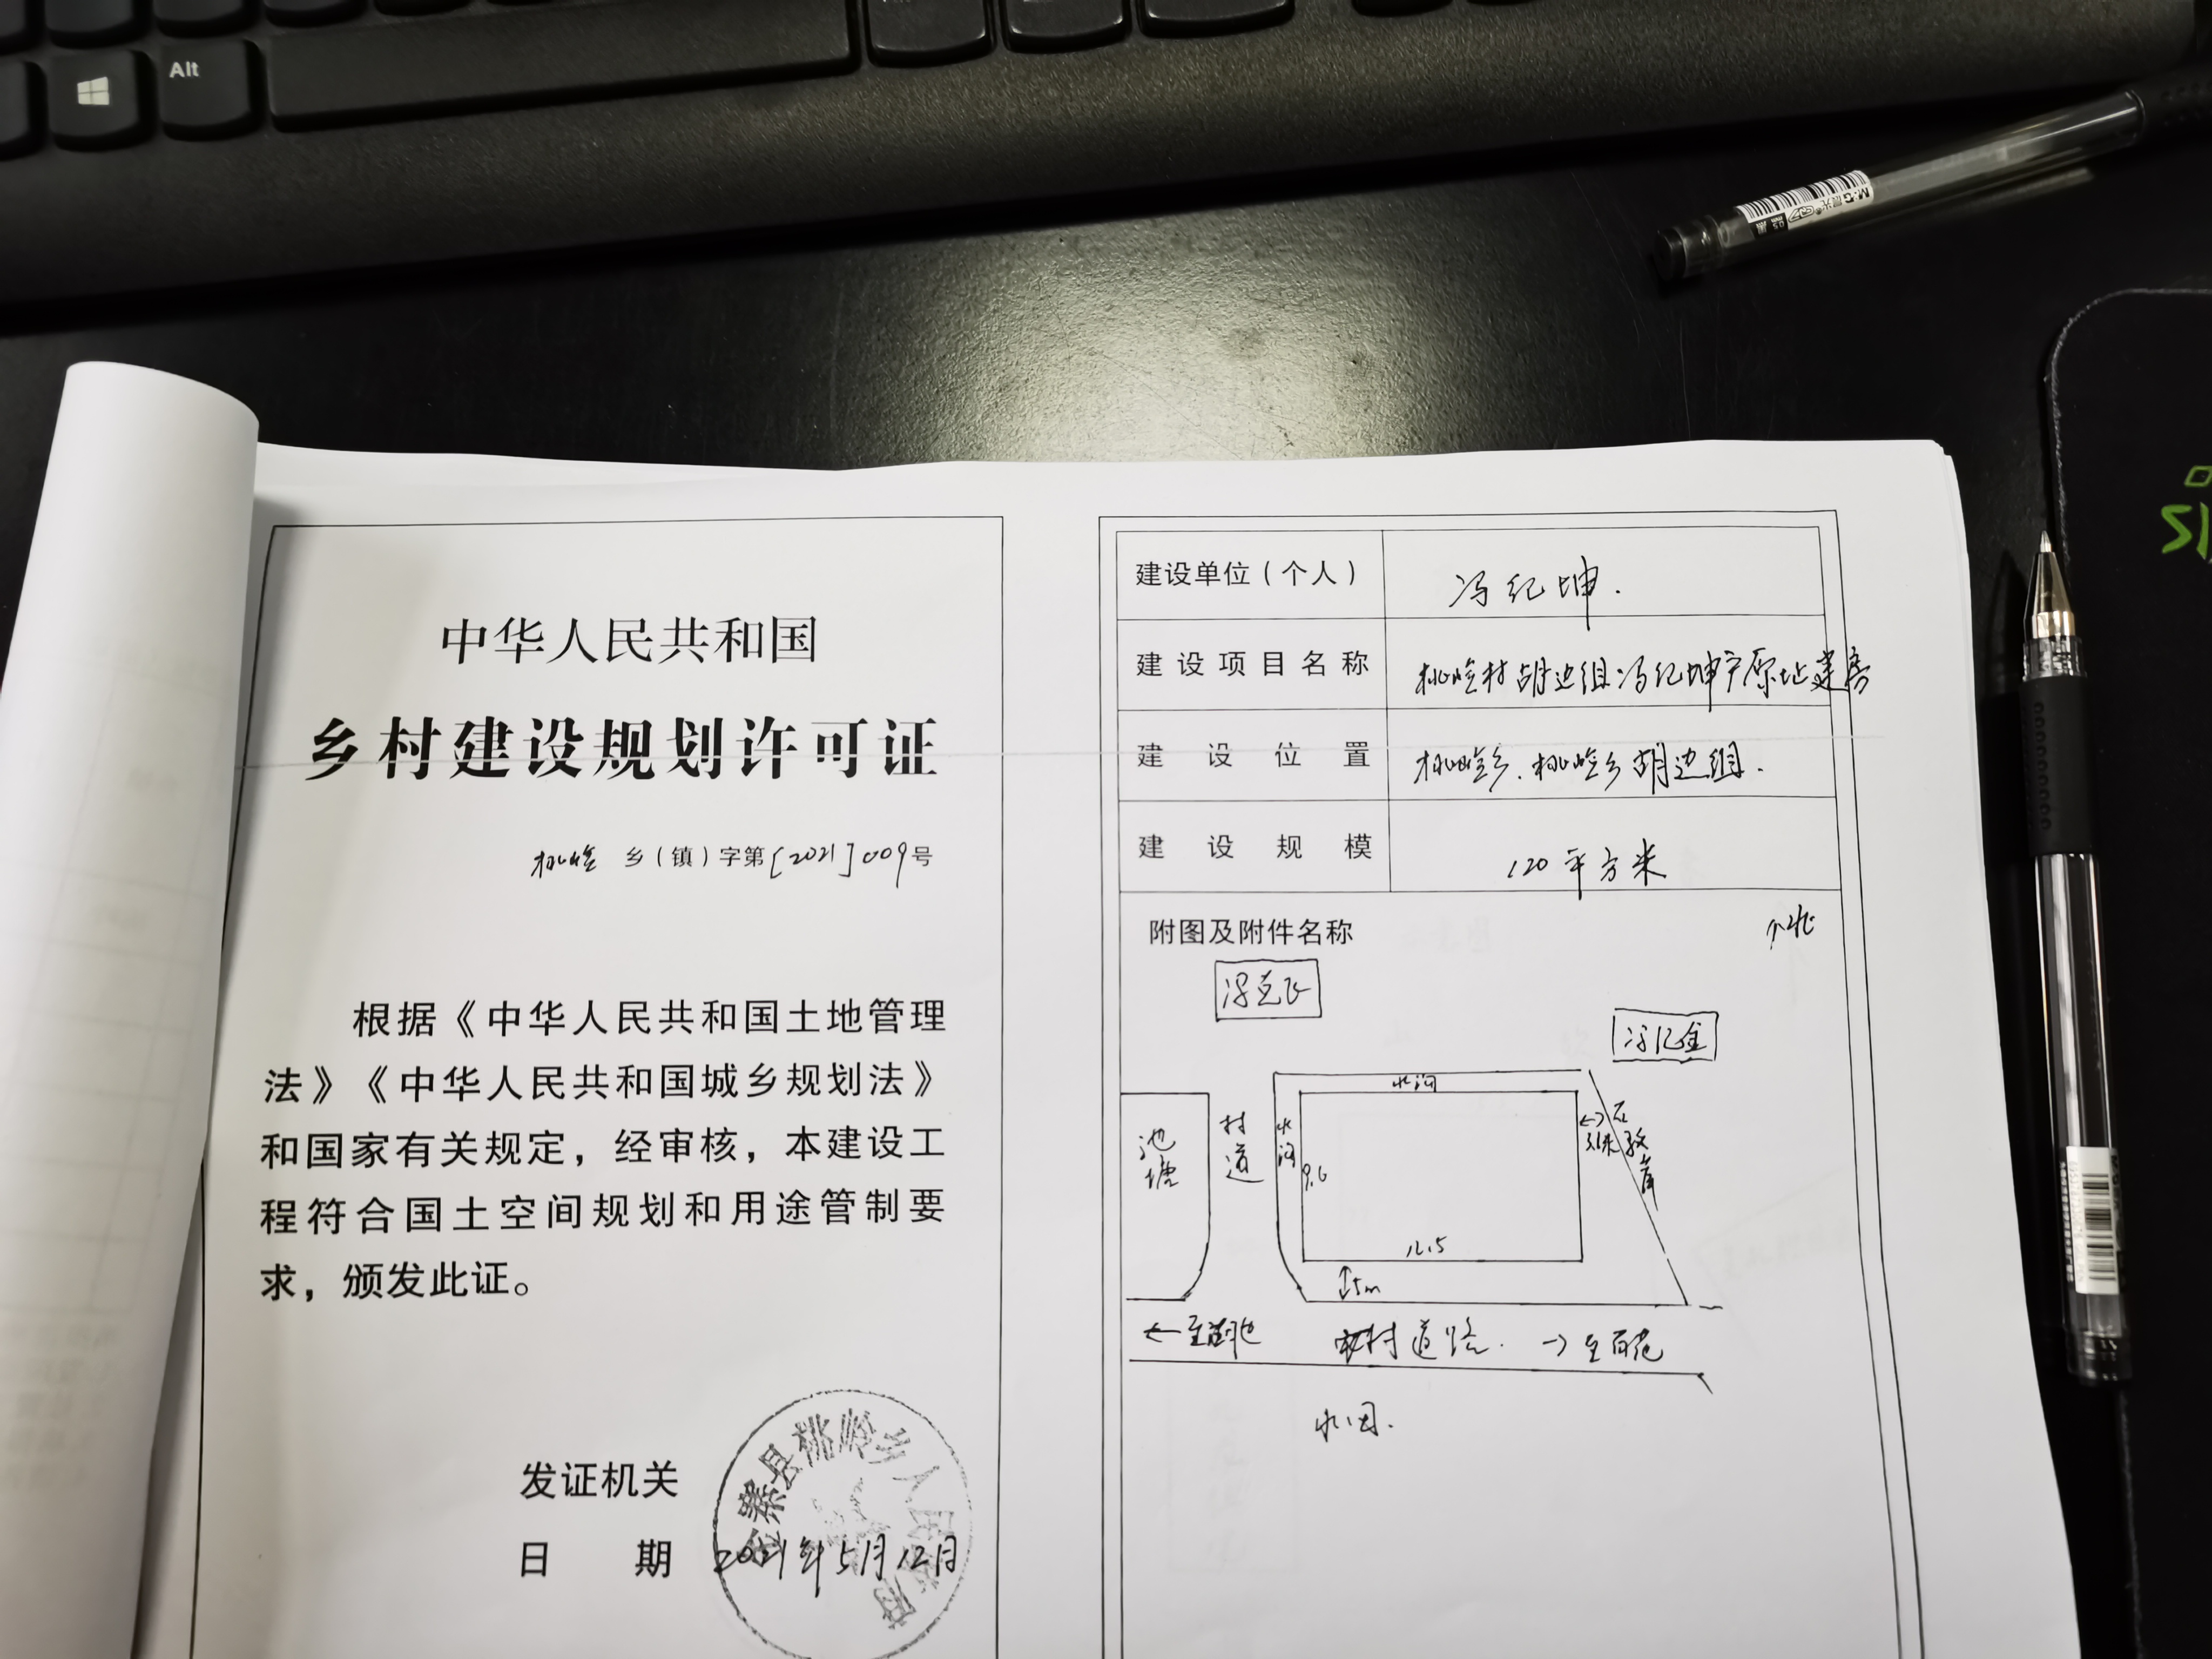 Alt
M&G
中华人民共和国
乡村建设规划许可证
桃岭 乡（镇）字第[2021]009号
根据《中华人民共和国土地管理
法》《中华人民共和国城乡规划法》
和国家有关规定，经审核，本建设工
程符合国土空间规划和用途管制要
求，颁发此证。
发证机关
金寨县桃岭乡人民政府
日 期 2021年5月12日
建设单位（个人） 冯纪坤.
建设项目名称 桃岭村胡边组冯纪坤户原址建房
建设位置 桃岭乡.桃岭乡胡边组.
建设规模 120平方米
附图及附件名称
↑北
冯克飞
冯纪金
水沟
池塘
村道
水沟
9.6
12.5
5m
村道路. →至百花
水田.